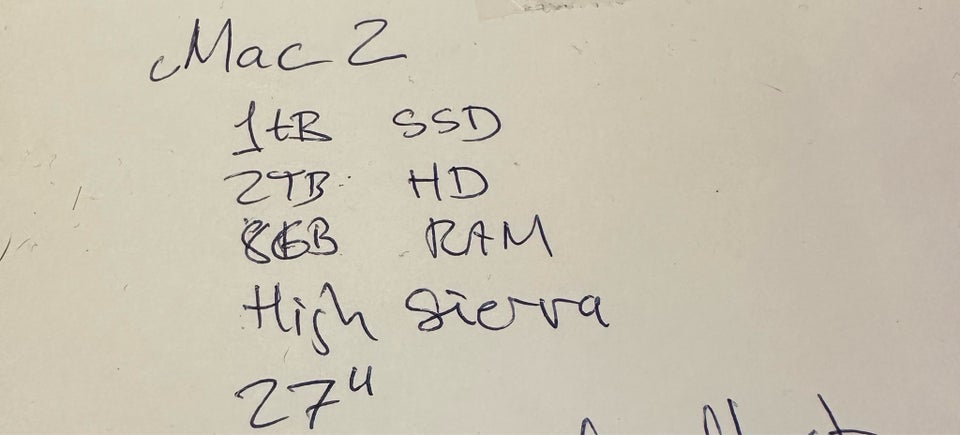 Mac 2
1tB SSD
2TB HD
8GB RAM
High Sierra
27"